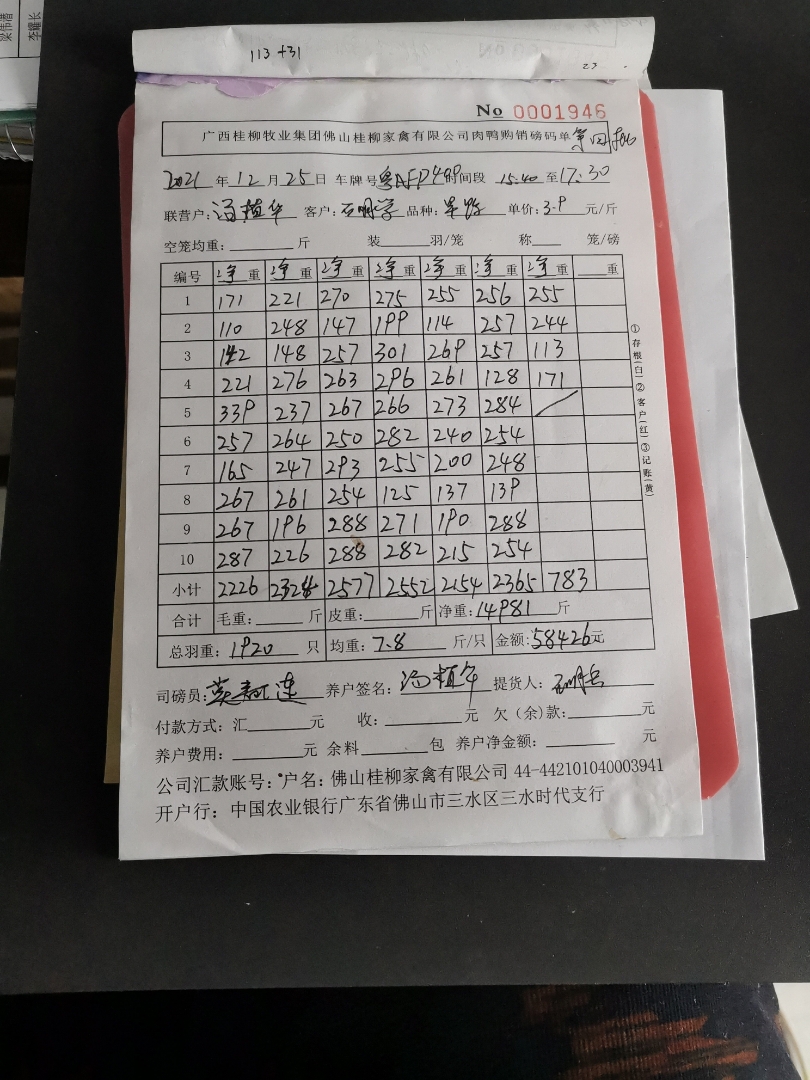 梁伟潜
李耀长
113+31
23
No 0001946
广西桂柳牧业集团佛山桂柳家禽有限公司肉鸭购销磅码单
2021 年 12 月 25 日 车牌号 粤AFD499 时间段 15:40 至 17:30
联营户: 汤植华 客户: 品种: 单价: 3.9 元/斤
空笼均重: 斤 装 羽/笼 称 笼/磅
编号 净重 净重 净重 净重 净重 净重 净重 重
1 171 221 270 275 255 256 255
2 110 248 147 199 114 257 244
3 142 148 257 301 269 257 113
4 221 276 263 296 261 128 171
5 339 237 267 266 273 284 /
6 257 264 250 282 240 254
7 165 247 293 255 200 248
8 267 261 254 125 137 139
9 267 196 288 271 190 288
10 287 226 288 282 215 254
小计 2226 2324 2577 2552 2154 2365 783
合计 毛重: 斤 皮重: 斤 净重: 14981 斤
总羽重: 1920 只 均重: 7.8 斤/只 金额: 58426元
司磅员: 养户签名: 提货人:
付款方式: 汇 元 收: 元 欠(余)款: 元
养户费用: 元 余料 包 养户净金额: 元
公司汇款账号: 户名: 佛山桂柳家禽有限公司 44-442101040003941
开户行: 中国农业银行广东省佛山市三水区三水时代支行
①存根(白)②客户(红)③记账(黄)